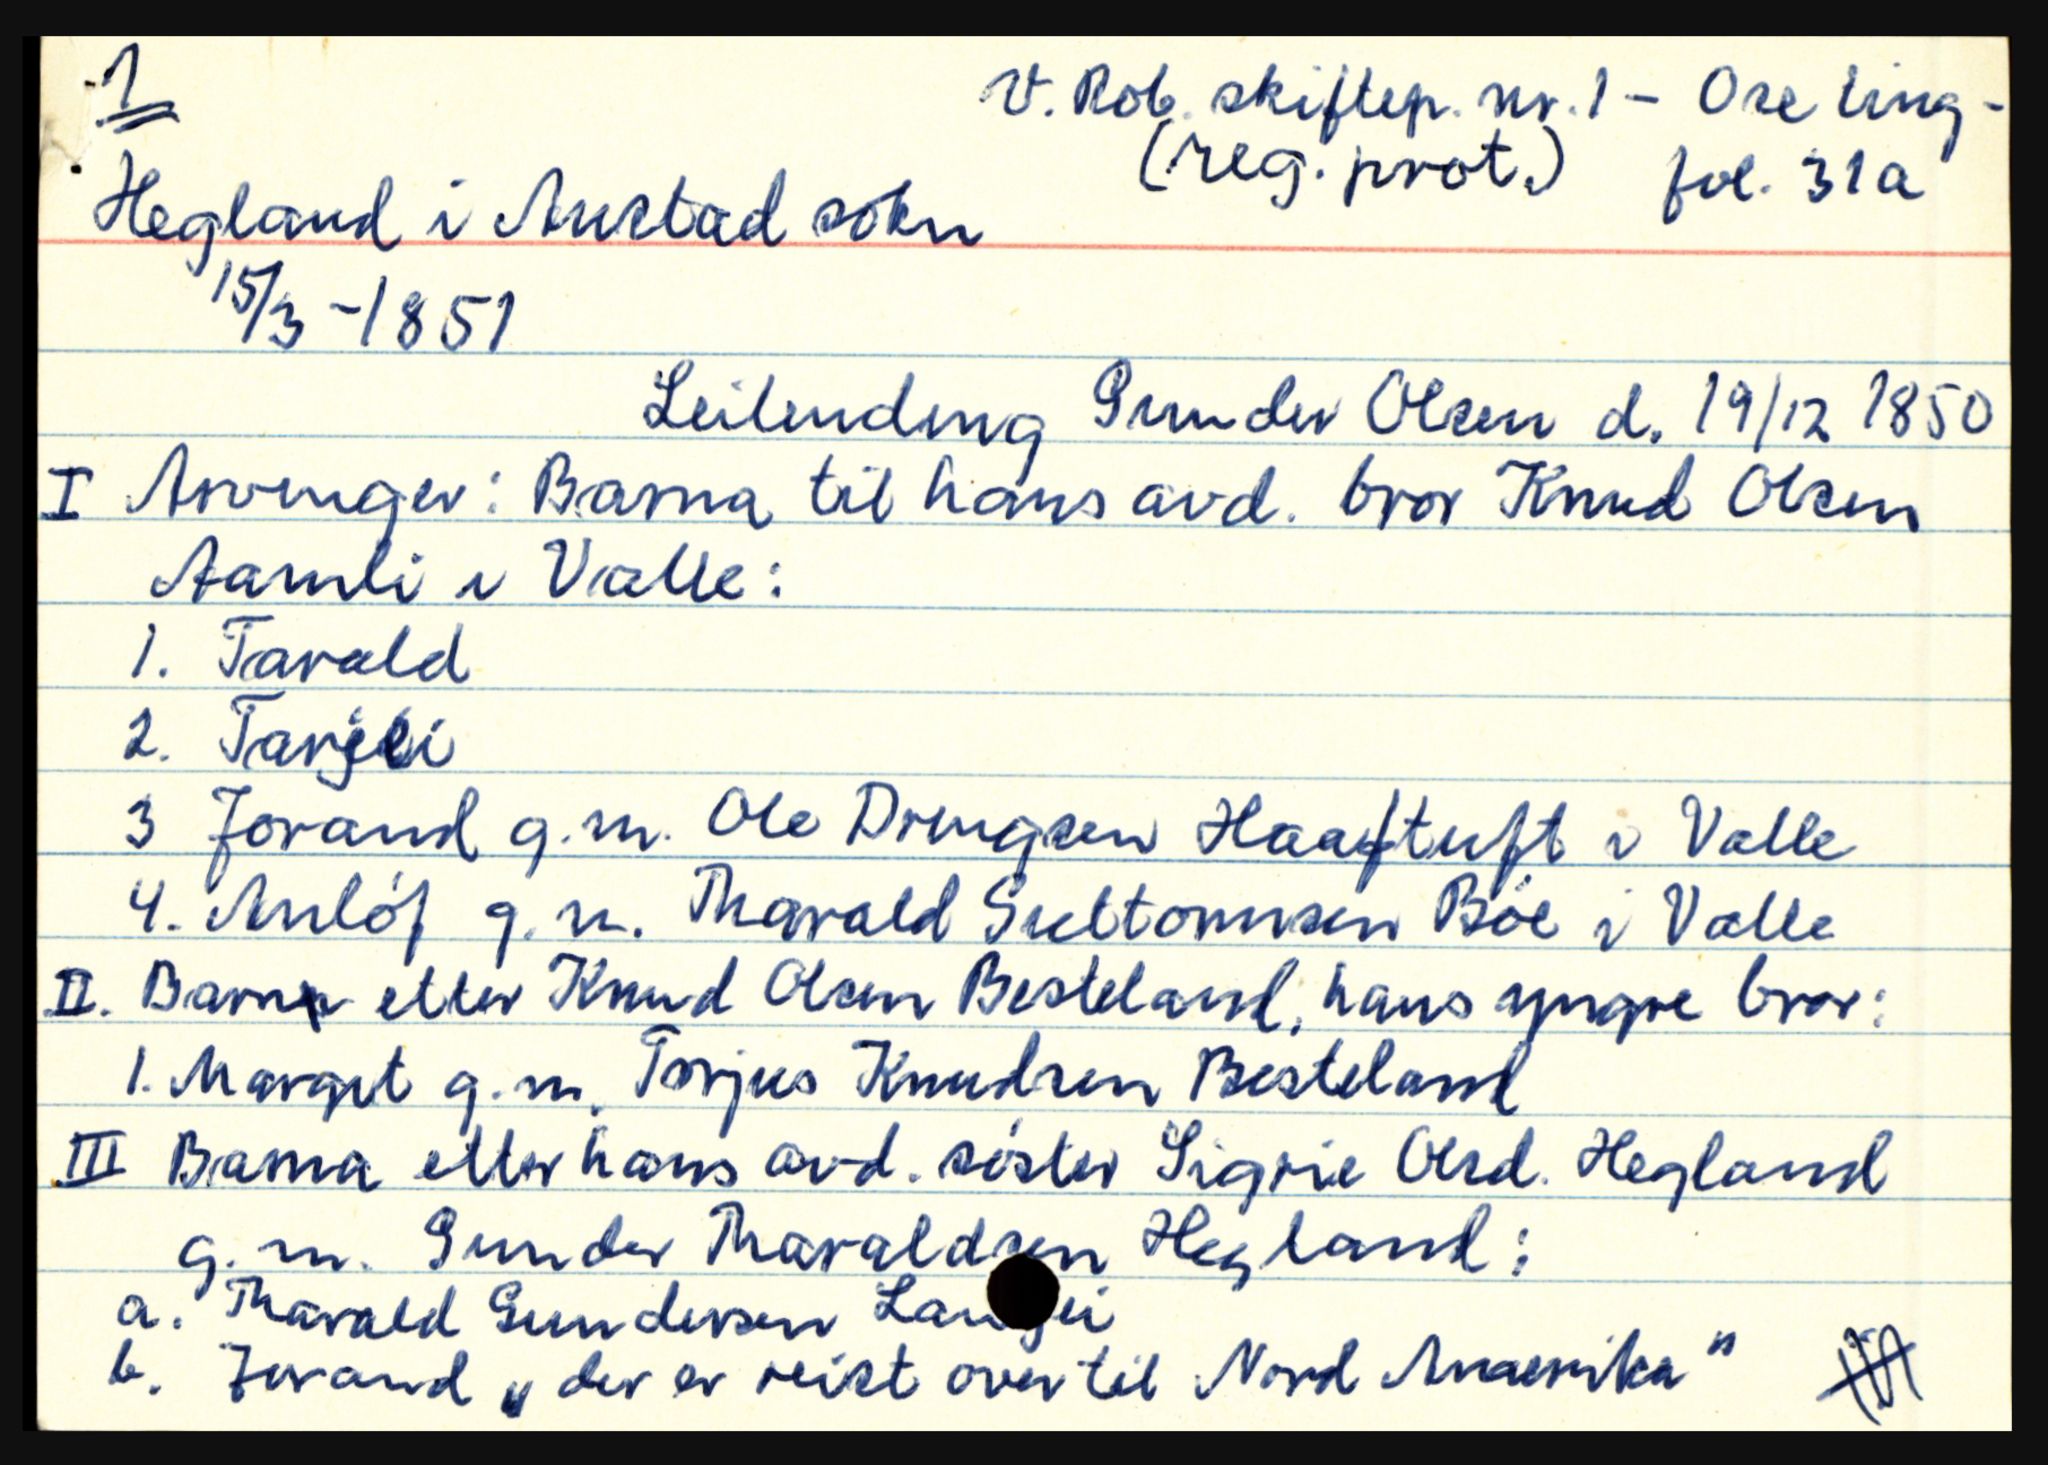 1
V. Rob. skiftep. nr. 1 - Ose ting -
(reg. prot.) fol. 31a
Hegland i Austad sokn
15/3 - 1851
Leilending Gunder Olsen d. 19/12 1850
I Arvinger: Barna til hans avd. bror Knud Olsen
Aamli i Valle:
1. Tarald
2. Tarjei
3 Jorand g.m. Ole Drengsen Haaftuft i Valle
4. Anlóf g.m. Tharald Guttormsen Bóe i Valle
II. Barn etter Knud Olsen Besteland, hans yngre bror:
1. Margit g.m. Torjus Knudsen Besteland
III Barna etter hans avd. sóster Sigrie Olsd. Hegland
g.m. Gunder Tharaldsen Hegland:
a. Tharald Gundersen
b. Jorand „der er reist over til Nord Amerika"